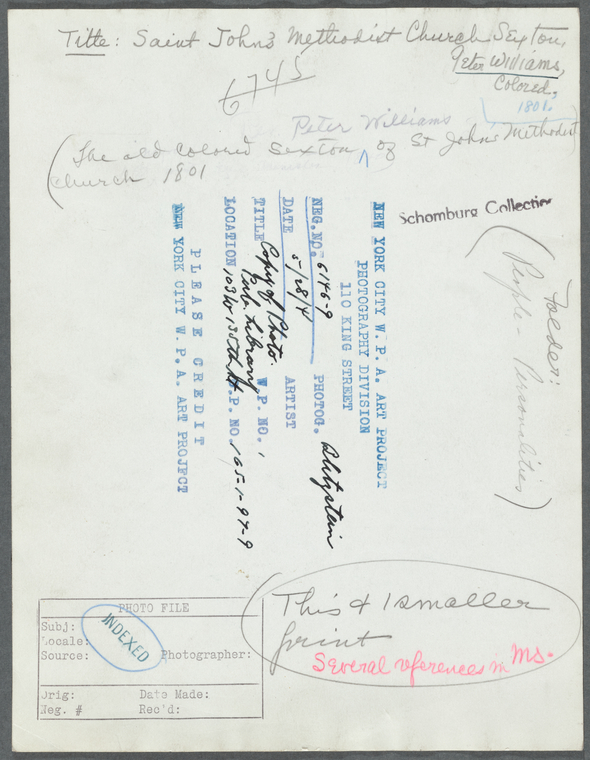 Title: Saint Johns Methodist Church Sexton,
Peter Williams,
Colored,
1801.
6745
Peter Williams
(The old colored sexton ^ of St Johns Methodist
church 1801
Schomburg Collection
Folder:
(People - Personalities)
NEW YORK CITY W. P. A. ART PROJECT
PHOTOGRAPHY DIVISION
110 KING STREET
NEG. NO. 6146-9 PHOTOG.
DATE 5/28/4 ARTIST
TITLE Copy of Photo. W.P. NO.
LOCATION Pub. Library
103 W 135th St W.P. NO. 165-1-97-9
PLEASE CREDIT
NEW YORK CITY W. P. A. ART PROJECT
This & 1 smaller
print
Several references in Ms.
PHOTO FILE
INDEXED
Subj:
Locale:
Source: Photographer:
Orig: Date Made:
Neg. # Rec'd: